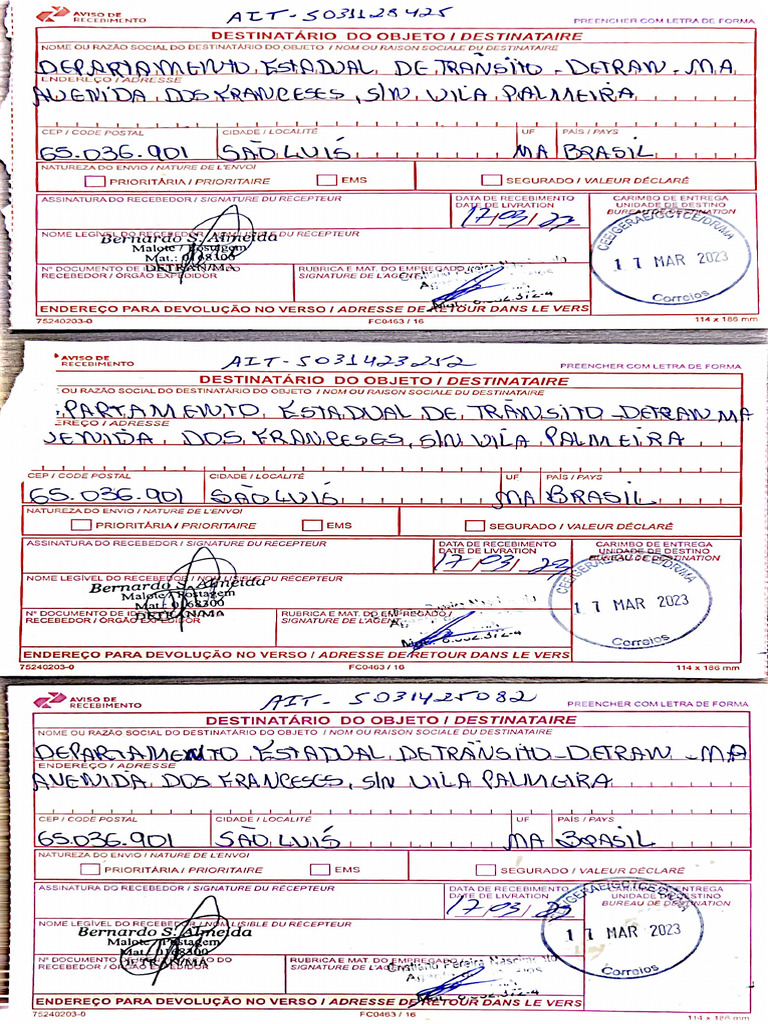 AVISO DE
RECEBIMENTO
AIT-5031128425
PREENCHER COM LETRA DE FORMA
DESTINATÁRIO DO OBJETO / DESTINATAIRE
NOME OU RAZÃO SOCIAL DO DESTINATÁRIO DO OBJETO / NOM OU RAISON SOCIALE DU DESTINATAIRE
DEPARTAMENTO ESTADUAL DE TRÂNSITO - DETRAN - MA
ENDEREÇO / ADRESSE
AVENIDA DOS FRANCESES, S/N VILA PALMEIRA
CEP / CODE POSTAL CIDADE / LOCALITÉ UF PAÍS / PAYS
65.036.901 SÃO LUÍS MA BRASIL
NATUREZA DO ENVIO / NATURE DE L'ENVOI
PRIORITÁRIA / PRIORITAIRE EMS SEGURADO / VALEUR DÉCLARÉ
ASSINATURA DO RECEBEDOR / SIGNATURE DU RÉCEPTEUR
DATA DE RECEBIMENTO
DATE DE LIVRATION
17/03/23
CARIMBO DE ENTREGA
UNIDADE DE DESTINO
BUREAU DE DESTINATION
17 MAR 2023
Correios
NOME LEGÍVEL DO RECEBEDOR
Bernardo S. Almeida
Malote / Postagem
Mat.: 0168300
DETRAN/MA
Nº DOCUMENTO DE
RECEBEDOR / ÓRGÃO EXPEDIDOR
RUBRICA E MAT. DO EMPREGADO
SIGNATURE DE L'AGENT
ENDEREÇO PARA DEVOLUÇÃO NO VERSO / ADRESSE DE RETOUR DANS LE VERS
75240203-0 FC0463 / 16 114 x 186 mm
AVISO DE
RECEBIMENTO
AIT-5031423252
PREENCHER COM LETRA DE FORMA
DESTINATÁRIO DO OBJETO / DESTINATAIRE
OU RAZÃO SOCIAL DO DESTINATÁRIO DO OBJETO / NOM OU RAISON SOCIALE DU DESTINATAIRE
PARTAMENTO ESTADUAL DE TRÂNSITO - DETRAN MA
EREÇO / ADRESSE
ENIDA DOS FRANCESES, S/N VILA PALMEIRA
CEP / CODE POSTAL CIDADE / LOCALITÉ UF PAÍS / PAYS
65.036.901 SÃO LUÍS MA BRASIL
NATUREZA DO ENVIO / NATURE DE L'ENVOI
PRIORITÁRIA / PRIORITAIRE EMS SEGURADO / VALEUR DÉCLARÉ
ASSINATURA DO RECEBEDOR / SIGNATURE DU RÉCEPTEUR
DATA DE RECEBIMENTO
DATE DE LIVRATION
17/03/23
CARIMBO DE ENTREGA
UNIDADE DE DESTINO
BUREAU DE DESTINATION
17 MAR 2023
Correios
NOME LEGÍVEL DO RECEBEDOR / NOM LISIBLE DU RÉCEPTEUR
Bernardo S. Almeida
Malote / Postagem
Mat.: 0168300
DETRAN/MA
Nº DOCUMENTO DE
RECEBEDOR / ÓRGÃO EXPEDIDOR
RUBRICA E MAT. DO EMPREGADO
SIGNATURE DE L'AGENT
ENDEREÇO PARA DEVOLUÇÃO NO VERSO / ADRESSE DE RETOUR DANS LE VERS
75240203-0 FC0463 / 16 114 x 186 mm
AVISO DE
RECEBIMENTO
AIT-5031425082
PREENCHER COM LETRA DE FORMA
DESTINATÁRIO DO OBJETO / DESTINATAIRE
NOME OU RAZÃO SOCIAL DO DESTINATÁRIO DO OBJETO / NOM OU RAISON SOCIALE DU DESTINATAIRE
DEPARTAMENTO ESTADUAL DE TRÂNSITO - DETRAN - MA
ENDEREÇO / ADRESSE
AVENIDA DOS FRANCESES, S/N VILA PALMEIRA
CEP / CODE POSTAL CIDADE / LOCALITÉ UF PAÍS / PAYS
65.036.901 SÃO LUÍS MA BRASIL
NATUREZA DO ENVIO / NATURE DE L'ENVOI
PRIORITÁRIA / PRIORITAIRE EMS SEGURADO / VALEUR DÉCLARÉ
ASSINATURA DO RECEBEDOR / SIGNATURE DU RÉCEPTEUR
DATA DE RECEBIMENTO
DATE DE LIVRATION
17/03/23
ENTREGA
UNIDADE DE DESTINO
BUREAU DE DESTINATION
17 MAR 2023
Correios
NOME LEGÍVEL DO RECEBEDOR / NOM LISIBLE DU RÉCEPTEUR
Bernardo S. Almeida
Malote / Postagem
Mat.: 0168300
DETRAN/MA
Nº DOCUMENTO DE DO
RECEBEDOR / ÓRGÃO EXPEDIDOR
RUBRICA E MAT. DO EMPREGADO
SIGNATURE DE L'AGENT
Cristiano Pereira Nascimento
ENDEREÇO PARA DEVOLUÇÃO NO VERSO / ADRESSE DE RETOUR DANS LE VERS
75240203-0 FC0463 / 16 114 x 186 mm